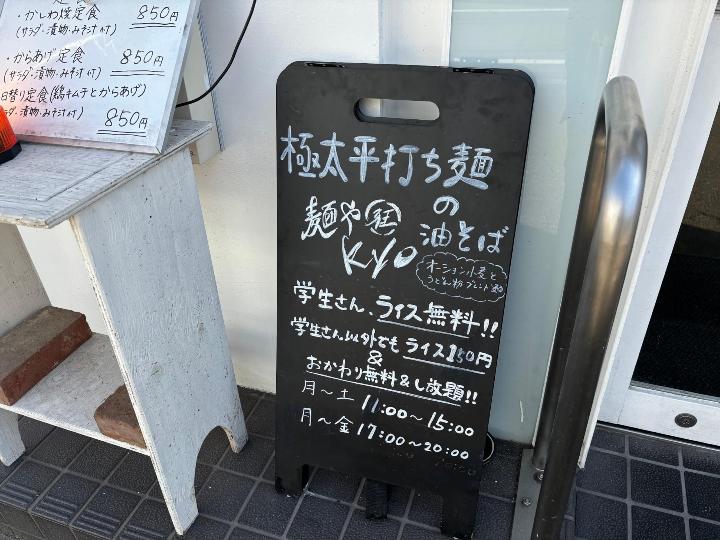 ・かしわ焼定食 850円
(サラダ・漬物・みそ汁付)
・からあげ定食 850円
(サラダ・漬物・みそ汁付)
日替り定食(鶏キムチとからあげ)
ダ・漬物・みそ汁付) 850円
極太平打ち麺
の
麺や 油そば
KYO
オーション小麦と
うどん粉ブレンド
学生さん、ライス無料!!
学生さん以外でもライス150円
&
おかわり無料&し放題!!
月～土 11:00～15:00
月～金 17:00～20:00